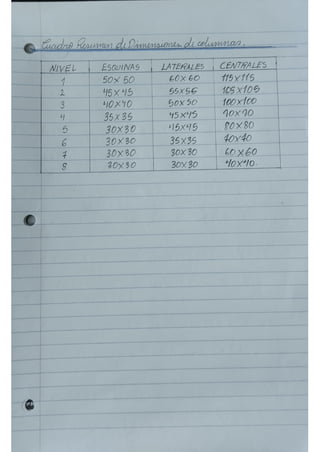 Cuadro Resumen de Dimensiones de columnas.
NIVEL ESQUINAS LATERALES CENTRALES
1 50x50 60x60 115x115
2 45x45 55x55 105x105
3 40x40 50x50 100x100
4 35x35 45x45 90x90
5 30x30 45x45 80x80
6 30x30 35x35 70x70
7 30x30 30x30 60x60
8 30x30 30x30 40x40.